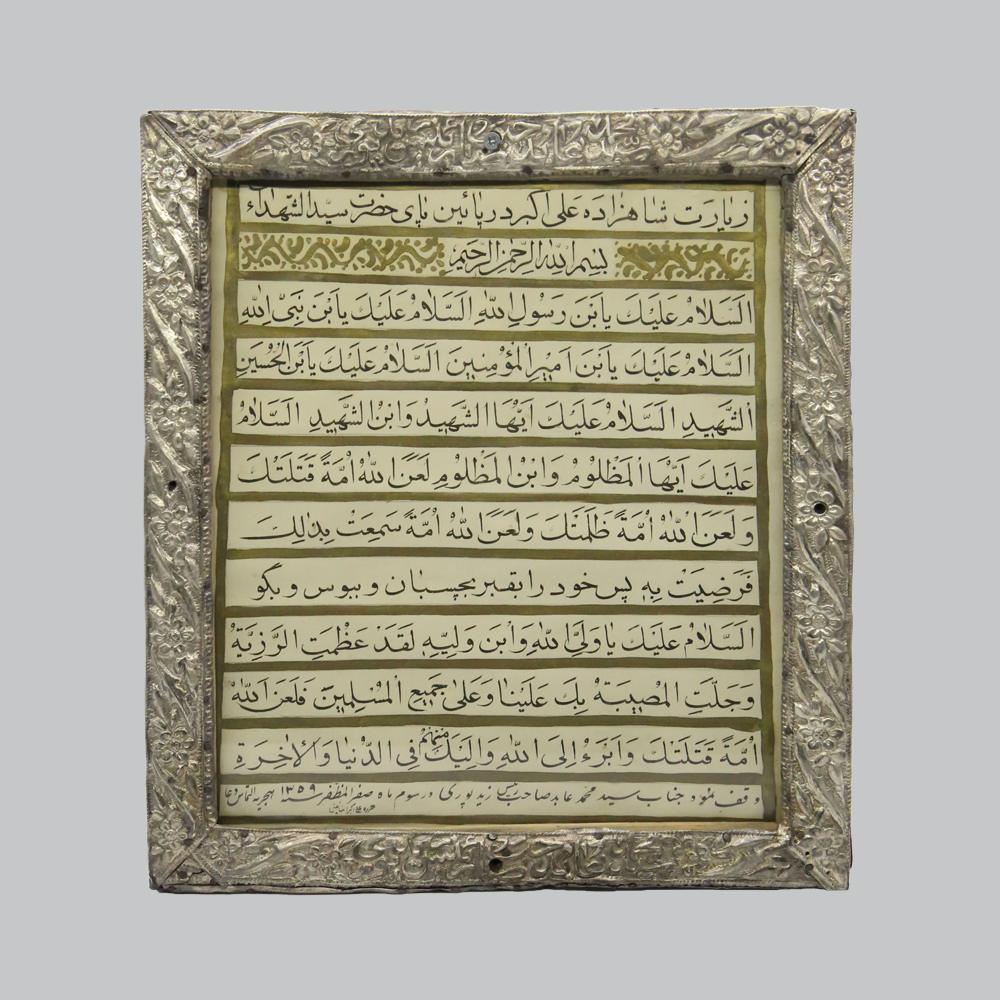 زیارت شاهزاده علی اکبر در پائین پای حضرت سید الشهداء
بسم الله الرحمن الرحیم
اَلسَّلامُ عَلَیْكَ یابْنَ رَسُولِ اللّٰهِ اَلسَّلامُ عَلَیْكَ یابْنَ نَبِیِّ اللّٰهِ
اَلسَّلامُ عَلَیْكَ یابْنَ اَمیرِ الْمُؤْمِنینَ اَلسَّلامُ عَلَیْكَ یابْنَ الْحُسَیْنِ
الشَّهیدِ اَلسَّلامُ عَلَیْكَ اَیُّهَا الشَّهیدُ وَابْنُ الشَّهیدِ اَلسَّلامُ
عَلَیْكَ اَیُّهَا الْمَظْلوُمُ وَابْنُ الْمَظْلوُمِ لَعَنَ اللّٰهُ اُمَّةً قَتَلَتْكَ
وَلَعَنَ اللّٰهُ اُمَّةً ظَلَمَتْكَ وَلَعَنَ اللّٰهُ اُمَّةً سَمِعَتْ بِذٰلِكَ
فَرَضِیَتْ بِهِ پس خود را بقبر بچسبان و ببوس و بگو
اَلسَّلامُ عَلَیْكَ یا وَلِیَّ اللّٰهِ وَابْنَ وَلِیِّهِ لَقَدْ عَظُمَتِ الرَّزِیَّةُ
وَجَلَّتِ الْمُصیبَةُ بِكَ عَلَیْنا وَعَلیٰ جَمیعِ الْمُسْلِمینَ فَلَعَنَ اللّٰهُ
اُمَّةً قَتَلَتْكَ وَاَبْرَءُ اِلَی اللّٰهِ وَاِلَیْكَ مِنْهُمْ فِی الدُّنْیا وَالْاٰخِرَةِ
وقف نمود جناب سید محمد عابد صاحب رئیس زید پوری در سوم ماه صفر المظفر سنه ۱۳۵۹ هجریه التماس دعا